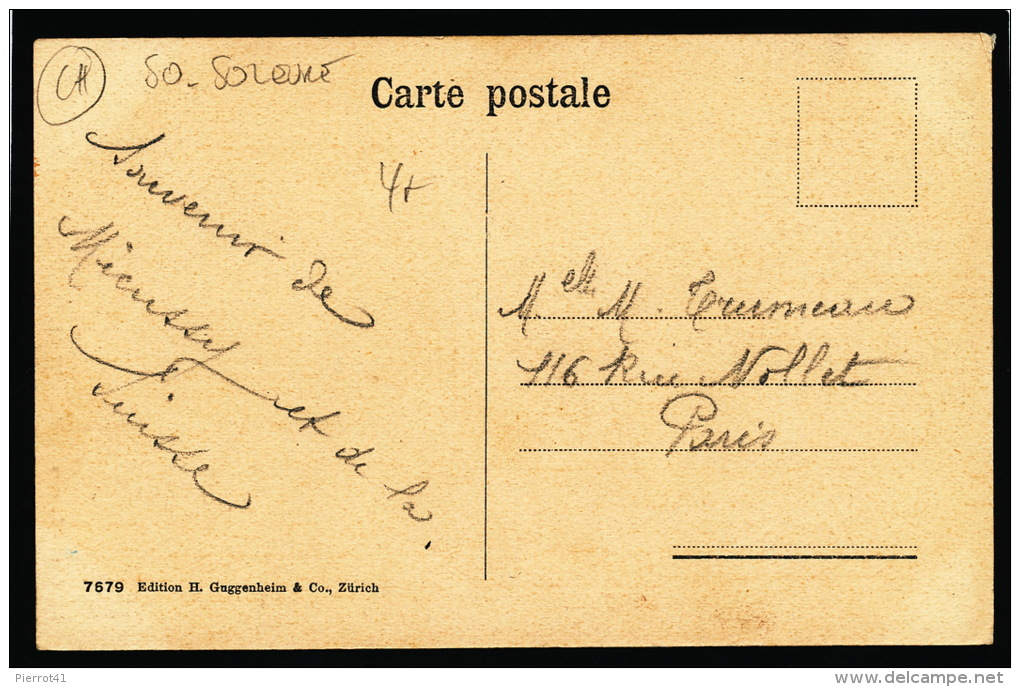 CH
SO - SOLEURE
Carte postale
4+
Souvenir de
Mieussy et de la
Suisse
Melle M. Trumeau
116 Rue Nollet
Paris
7679 Edition H. Guggenheim & Co., Zürich
Pierrot41
www.delcampe.net